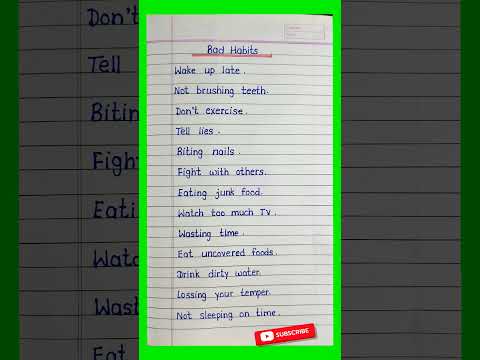 Don't
Tell
Biting
Fight
Eating
Watc
Wast
Bad Habits
Wake up late.
Not brushing teeth.
Don't exercise.
Tell lies.
Biting nails.
Fight with others.
Eating junk food.
Watch too much Tv.
Wasting time.
Eat uncovered foods.
Drink dirty water.
Lossing your temper.
Not sleeping on time.
SUBSCRIBE